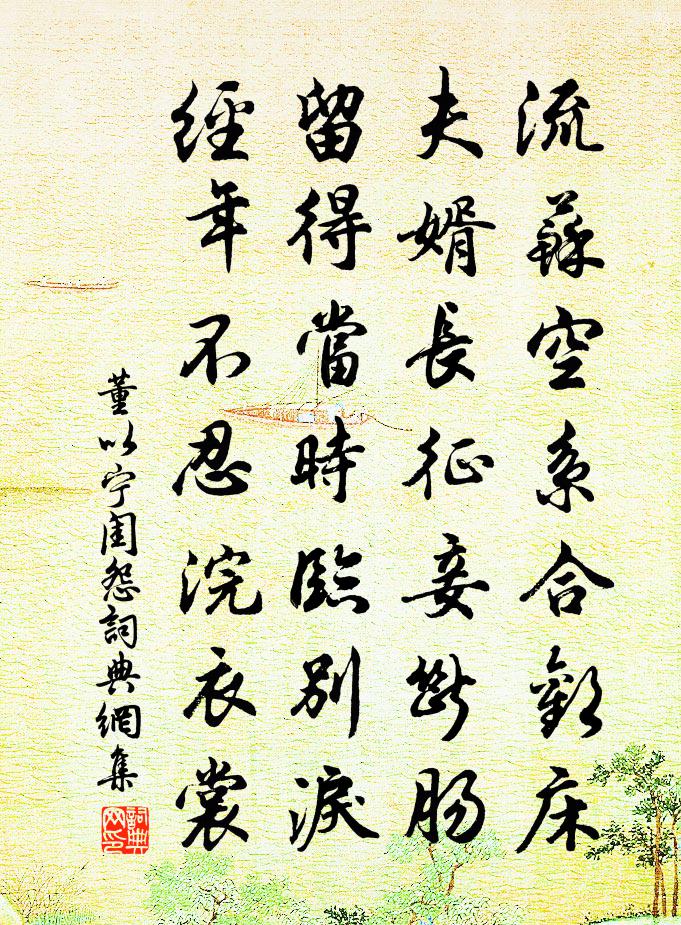 流蘇空系合歡床
夫婿長征妾斷腸
留得當時臨別淚
經年不忍浣衣裳
董以宁閨怨詞典網集
詞典網印